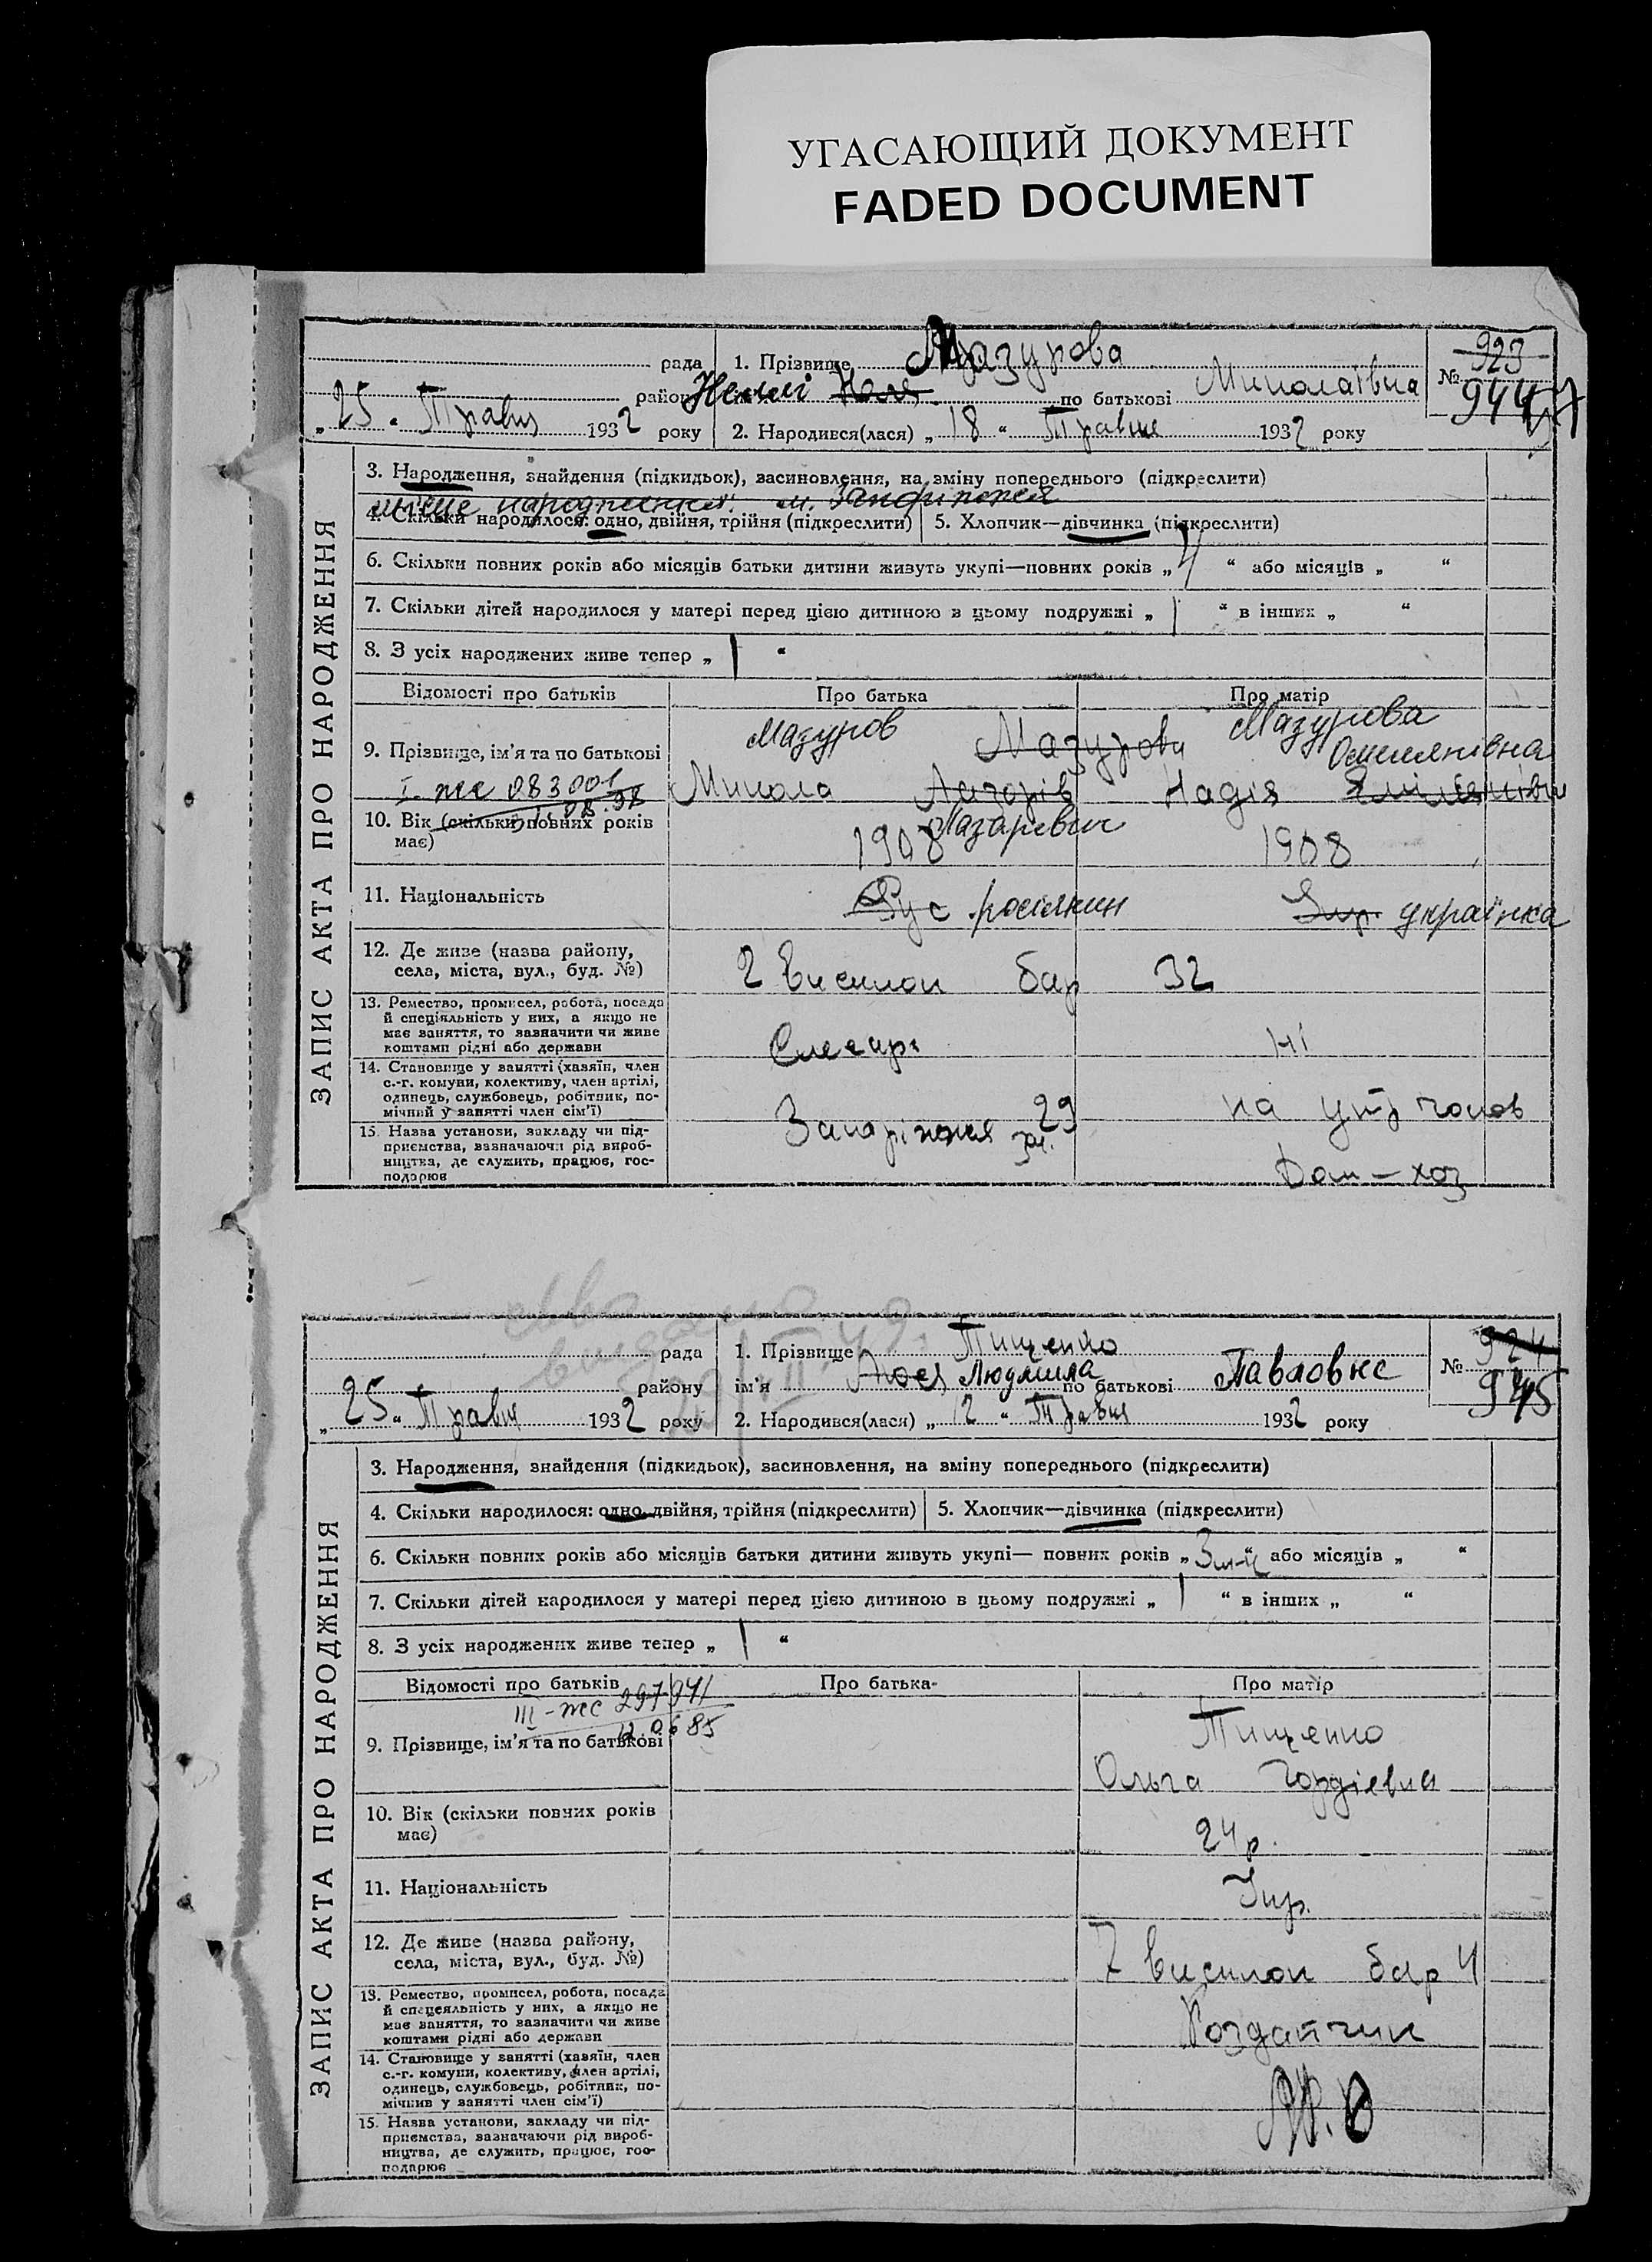 УГАСАЮЩИЙ ДОКУМЕНТ
FADED DOCUMENT
рада
району
„25“ Травня 1932 року
1. Прізвище Мазурова
Неля по батькові Миколаївна
2. Народився(лася) „18“ Травня 1932 року
№ 923
944
ЗАПИС АКТА ПРО НАРОДЖЕННЯ
3. Народження, знайдення (підкидьок), засиновлення, на зміну попереднього (підкреслити)
місце народження: м. Запоріжжя
4. Скільки народилося: одно, двійня, трійня (підкреслити)
5. Хлопчик—дівчинка (підкреслити)
6. Скільки повних років або місяців батьки дитини живуть укупі—повних років „4“ або місяців „ “
7. Скільки дітей народилося у матері перед цією дитиною в цьому подружжі „1“ в інших „ “
8. З усіх народжених живе тепер „1“
Відомості про батьків
Про батька
Про матір
9. Прізвище, ім’я та по батькові
Мазуров
Мазурова
Мазурова
Омелянівна
I. жс 083001
Микола
Надія
Лазаревич
10. Вік (скільки повних років має)
1908
1908
11. Національність
Рус росіянин
Укр. українка
12. Де живе (назва району, села, міста, вул., буд. №)
2 Висилок бар 32
13. Ремество, промисел, робота, посада
й спеціяльність у них, а якщо не
має заняття, то зазначити чи живе
коштами рідні або держави
Слесарь
Ні
14. Становище у занятті (хазяїн, член
с.-г. комуни, колективу, член артілі,
одинець, службовець, робітник, по-
мічний у занятті член сім’ї)
на утр чолов
15. Назва установи, закладу чи під-
приємства, зазначаючи рід вироб-
ництва, де служить, працює, гос-
подарює
Запоріжжя 29
Дом—хоз
рада
району
„25“ Травня 1932 року
1. Прізвище Тищенко
ім’я Людмила по батькові Павловна
2. Народився(лася) „12“ Травня 1932 року
№ 924
945
ЗАПИС АКТА ПРО НАРОДЖЕННЯ
3. Народження, знайдення (підкидьок), засиновлення, на зміну попереднього (підкреслити)
4. Скільки народилося: одно, двійня, трійня (підкреслити)
5. Хлопчик—дівчинка (підкреслити)
6. Скільки повних років або місяців батьки дитини живуть укупі— повних років „ “ або місяців „ “
7. Скільки дітей народилося у матері перед цією дитиною в цьому подружжі „1“ в інших „ “
8. З усіх народжених живе тепер „1“
Відомості про батьків
Про батька
Про матір
III-жс 297941
12.06 85
9. Прізвище, ім’я та по батькові
Тищенко
Ольга Гордіевна
10. Вік (скільки повних років має)
24 р.
11. Національність
Укр.
12. Де живе (назва району, села, міста, вул., буд. №)
7 Висилок бар 4
13. Ремество, промисел, робота, посада
й спецеяльність у них, а якщо не
має заняття, то зазначити чи живе
коштами рідні або держави
Роздатчик
14. Становище у занятті (хазяїн, член
с.-г. комуни, колективу, член артілі,
одинець, службовець, робітник, по-
мічнив у занятті член сім’ї)
15. Назва установи, закладу чи під-
приємства, зазначаючи рід вироб-
ництва, де служить, працює, гос-
подарює